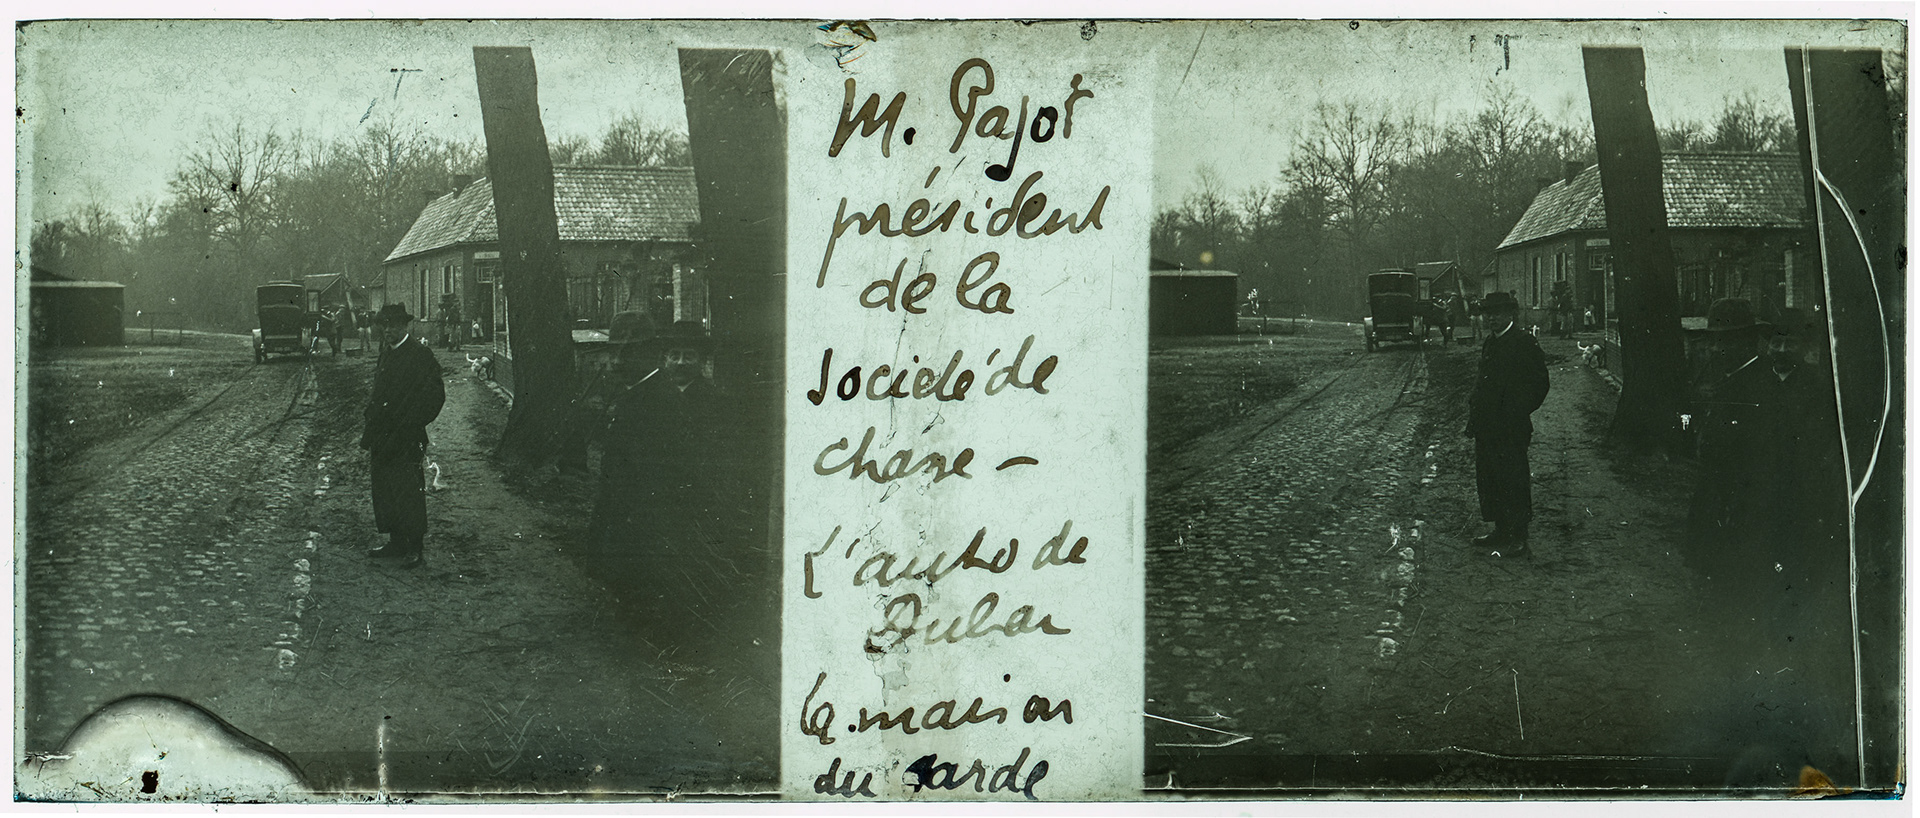 M. Pajot
président
de la
société de
chasse —
L'auto de
Dubar
la maison
du garde